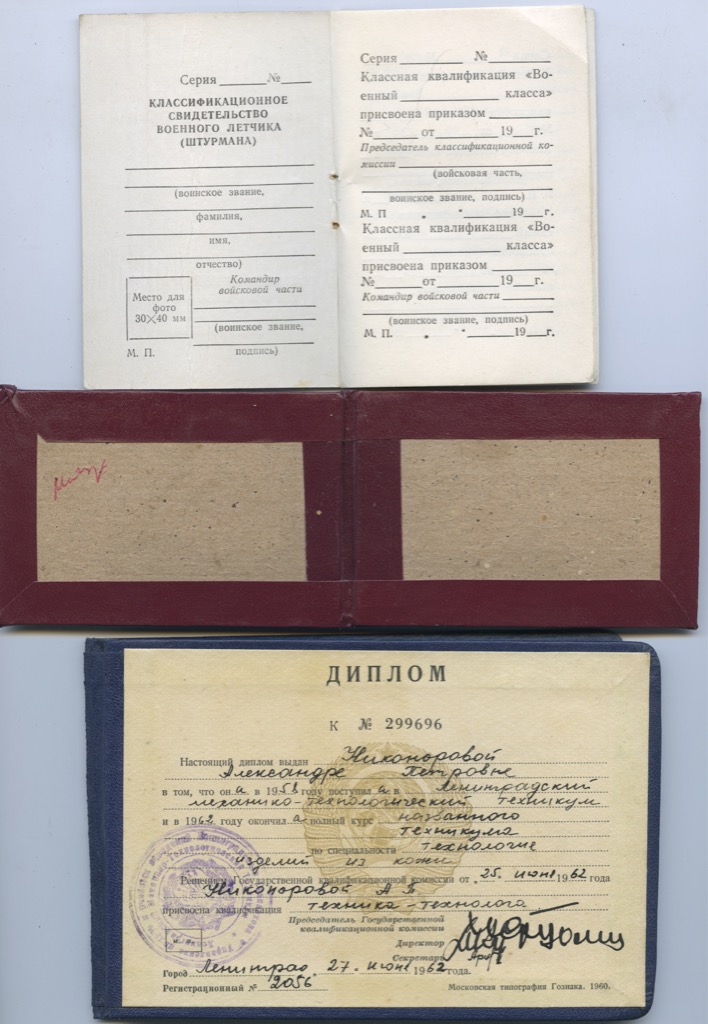 Серия ______ №____
КЛАССИФИКАЦИОННОЕ
СВИДЕТЕЛЬСТВО
ВОЕННОГО ЛЕТЧИКА
(ШТУРМАНА)
(воинское звание,
фамилия,
имя,
отчество)
Командир
войсковой части
Место для
фото
30×40 мм
(воинское звание,
М. П.
подпись)
Серия ________ №________
Классная квалификация «Во-
енный ____________ класса»
присвоена приказом ________
№______ от ________ 19__г.
Председатель классификационной ко-
миссии
(войсковая часть,
воинское звание, подпись)
М. П . . 19__г.
Классная квалификация «Во-
енный ____________ класса»
присвоена приказом ________
№______ от ________ 19__г.
Командир войсковой части
(воинское звание, подпись)
М. П. . . 19__г.
ДИПЛОМ
К № 299696
Настоящий диплом выдан Никоноровой
Александре Петровне
в том, что она в 1958 году поступила в Ленинградский
механико-технологический техникум
и в 1962 году окончила полный курс названного
техникума
по специальности технология
изделий из кожи
Решением Государственной квалификационной комиссии от 25 июня 1962 года
Никоноровой А. П.
присвоена квалификация техника-технолога
Председатель Государственной
квалификационной комиссии
Директор
Секретарь
Город Ленинград. 27. июня 1962 года.
Регистрационный № 2056
Московская типография Гознака. 1960.